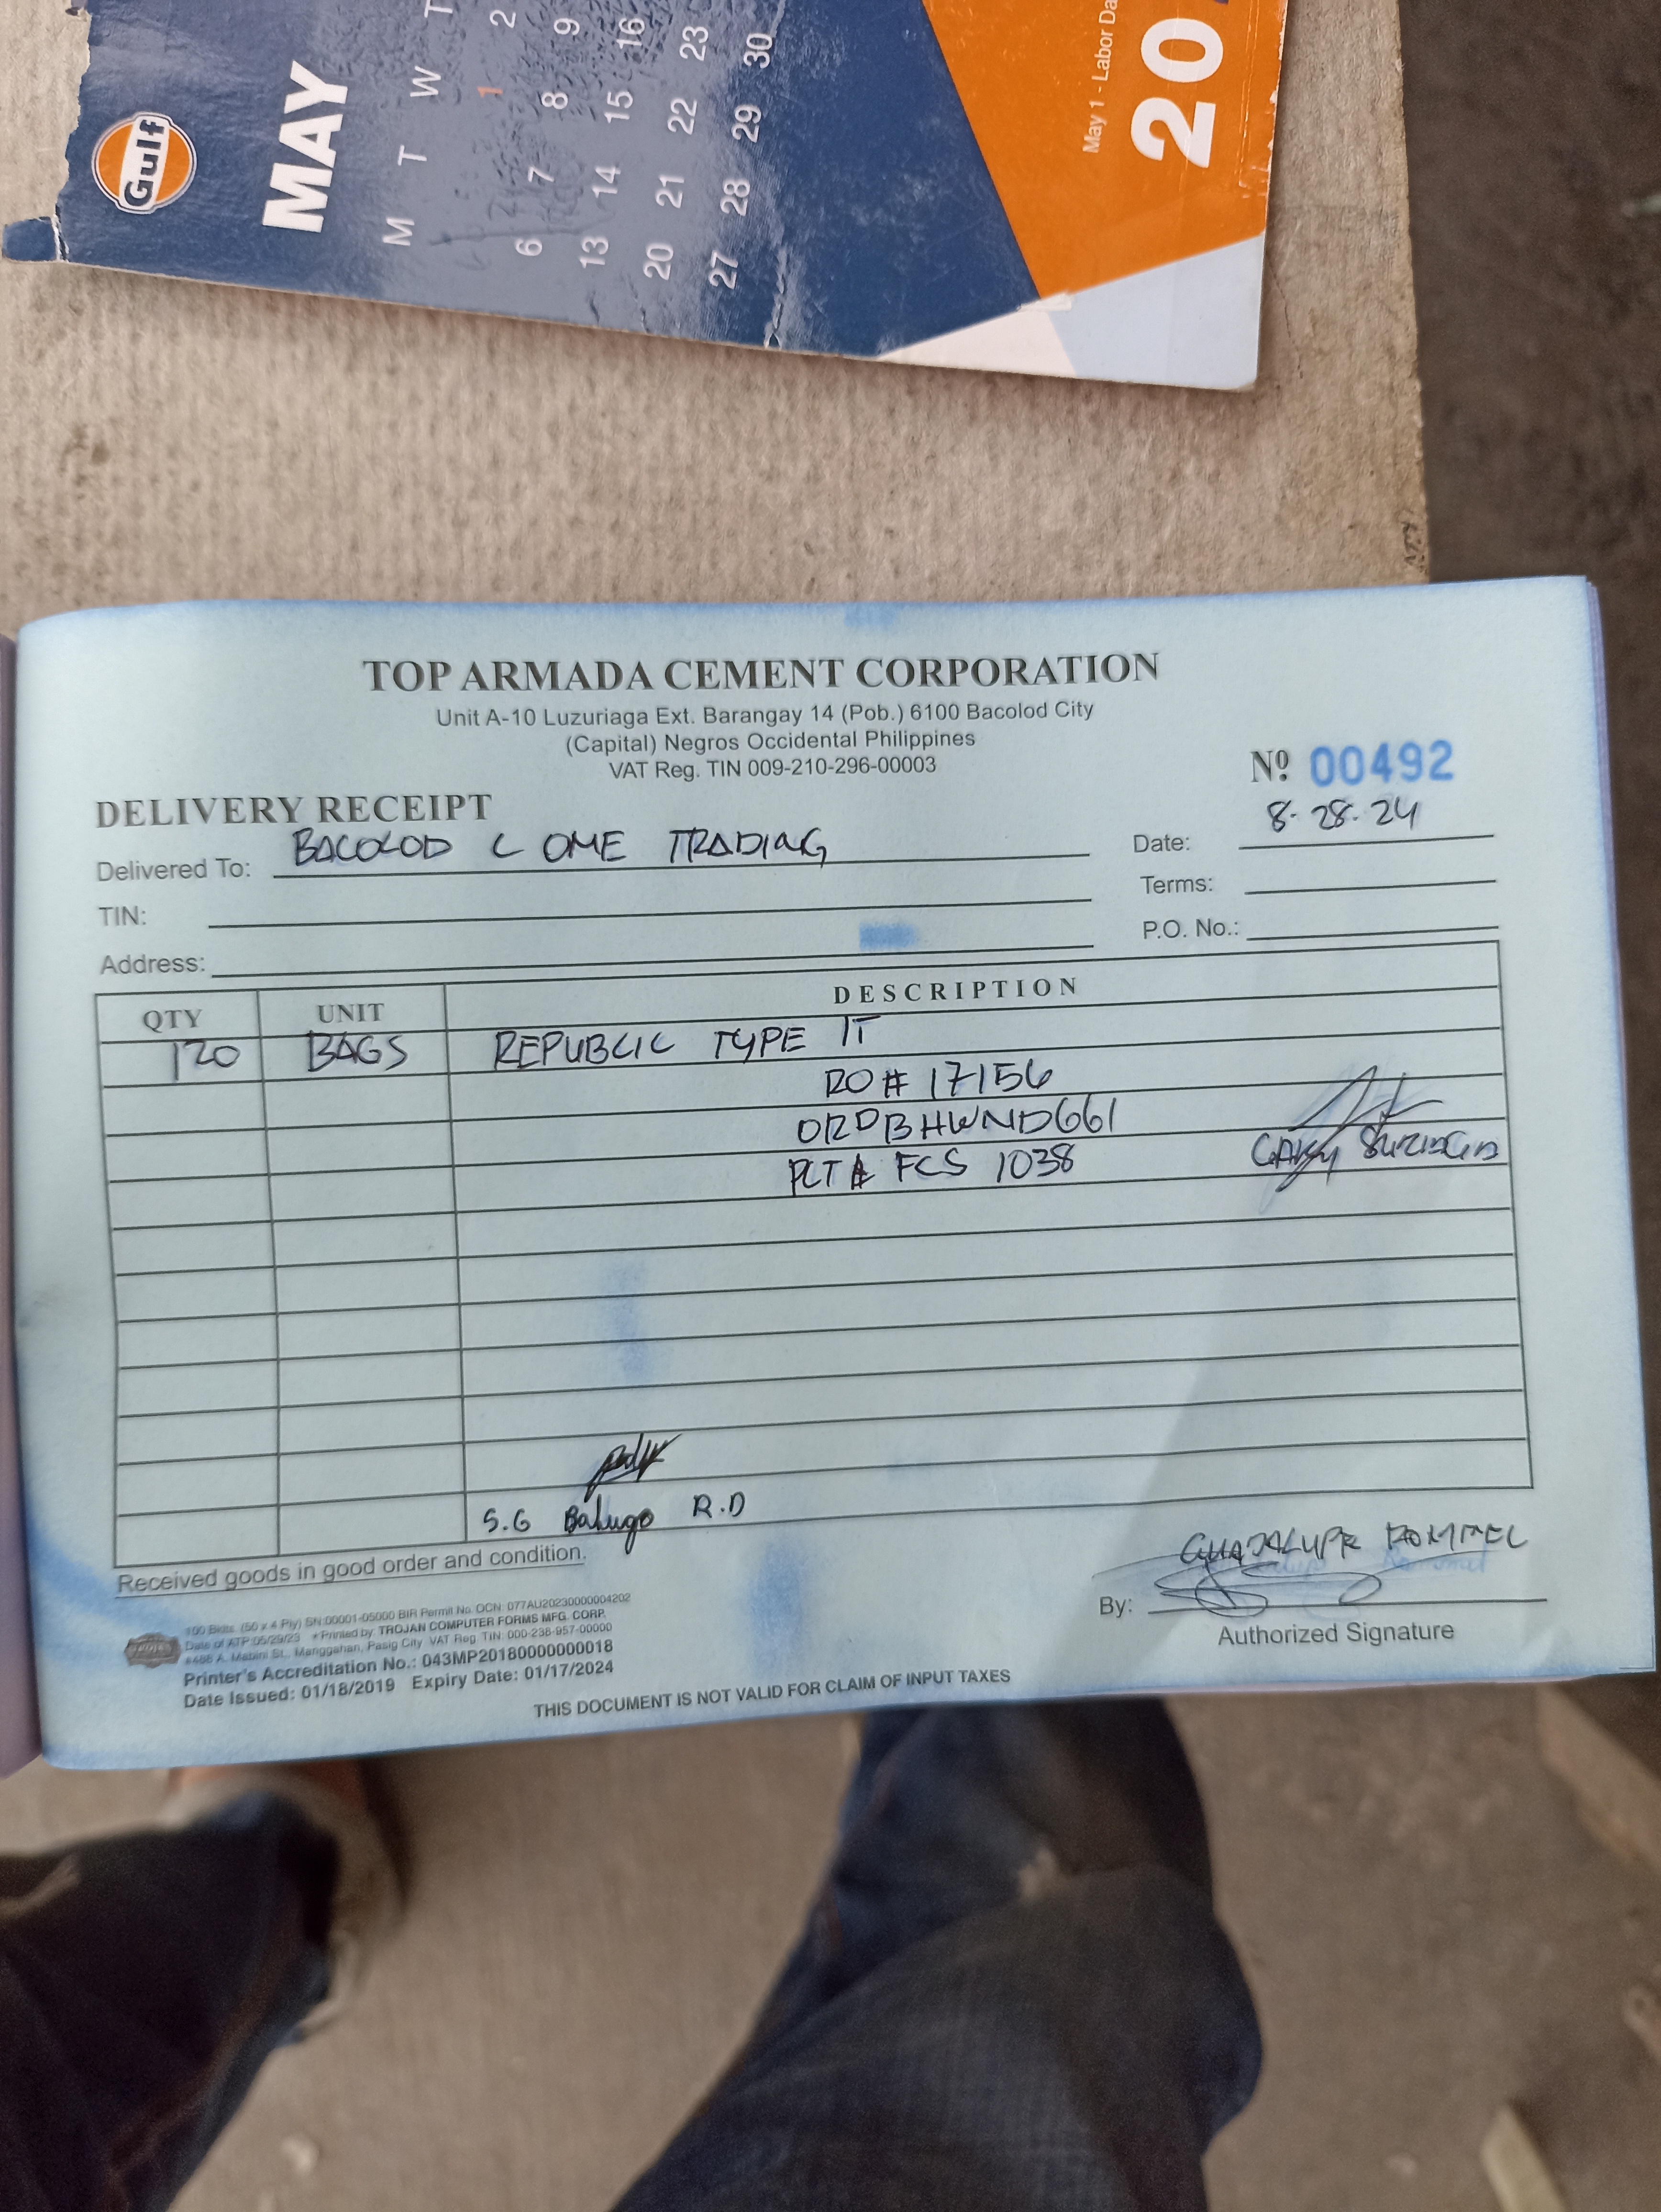 Gulf
MAY
M T W T
1 2
6 7 8 9
13 14 15 16
20 21 22 23
27 28 29 30
May 1 - Labor Da
20
TOP ARMADA CEMENT CORPORATION
Unit A-10 Luzuriaga Ext. Barangay 14 (Pob.) 6100 Bacolod City
(Capital) Negros Occidental Philippines
VAT Reg. TIN 009-210-296-00003
Nº 00492
DELIVERY RECEIPT
Delivered To: BACOLOD L OME TRADING
Date: 8-28-24
TIN:
Terms:
Address:
P.O. No.:
QTY UNIT DESCRIPTION
120 BAGS REPUBLIC TYPE 1T
RO # 17156
ORDBHWND661
PLT # FCS 1038
GARY
S.G Balugo R.D
Received goods in good order and condition.
GUADALUPE ROMMEL
By:
Authorized Signature
100 Bklts. (50 x 4 Ply) SN:00001-05000 BIR Permit No. OCN: 077AU20230000004202
Date of ATP:05/29/23 *Printed by: TROJAN COMPUTER FORMS MFG. CORP.
#488 A. Mabini St., Manggahan, Pasig City VAT Reg TIN: 000-238-957-00000
Printer's Accreditation No.: 043MP20180000000018
Date Issued: 01/18/2019 Expiry Date: 01/17/2024
THIS DOCUMENT IS NOT VALID FOR CLAIM OF INPUT TAXES